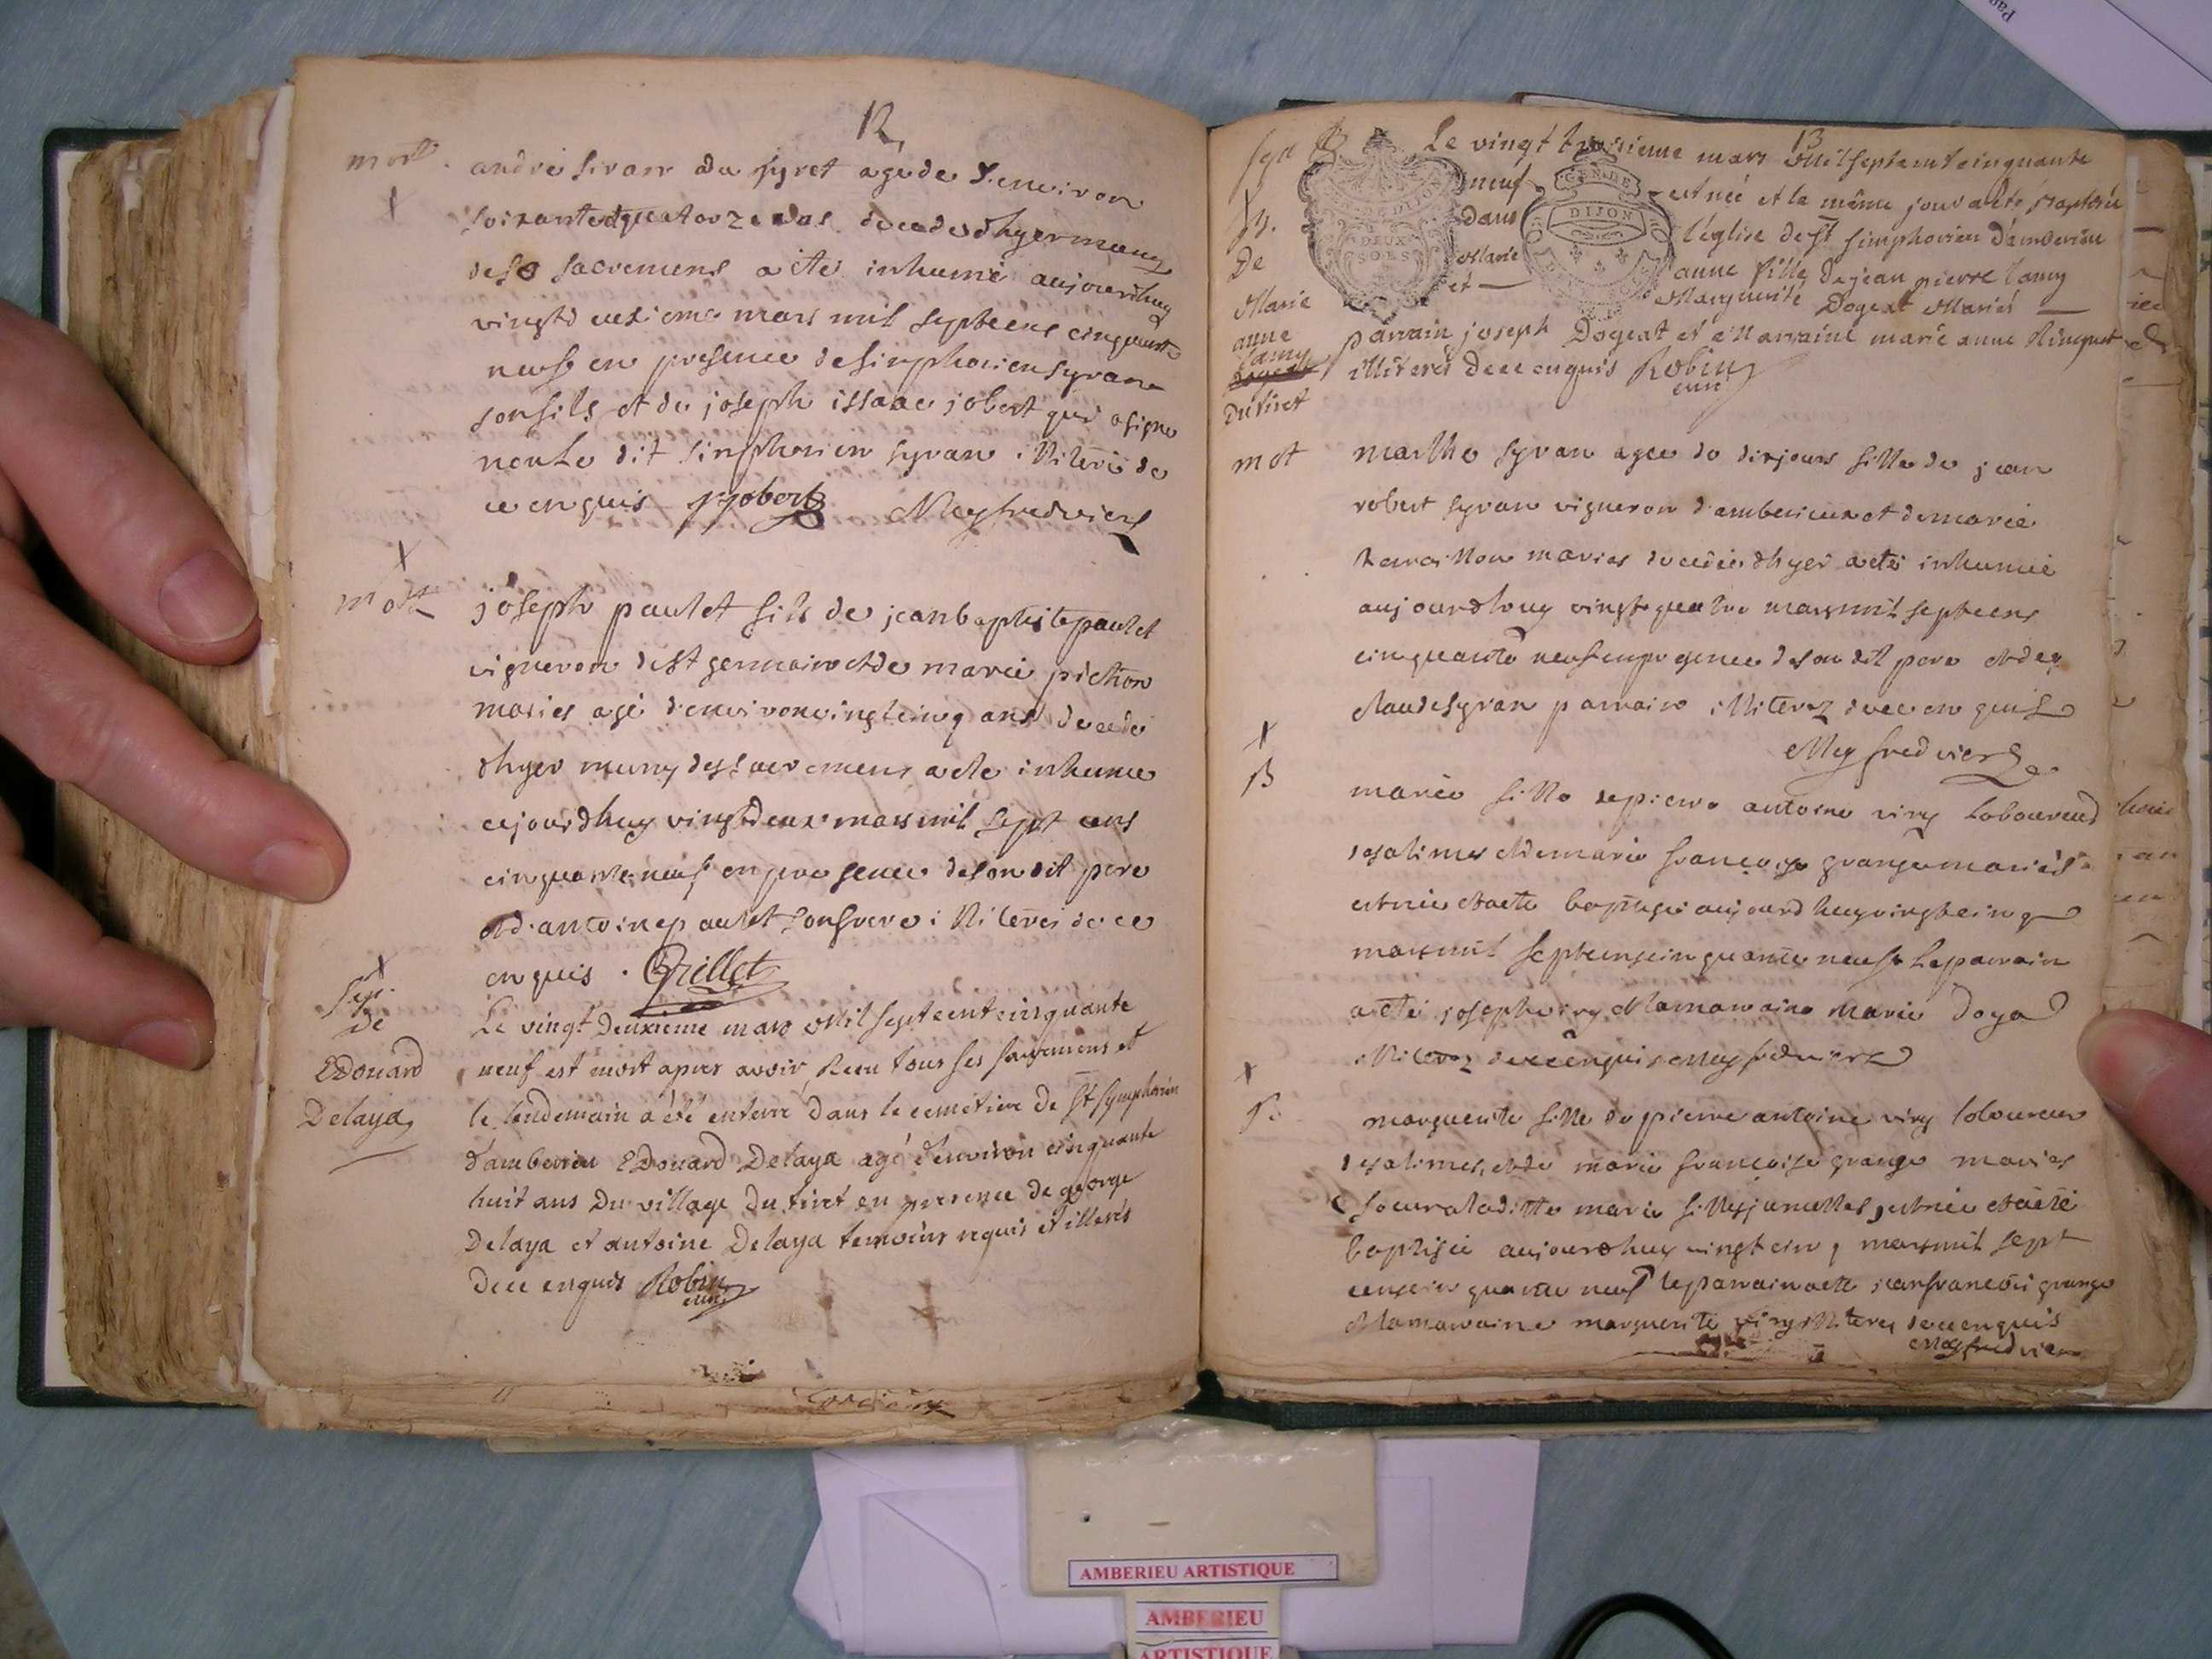 12
mort
andré sivan du tyret agé de d'environ
soixante et quatorze ans decedé dhyer muny
des sacremens a eté inhumé aujourdhuy
vingt deuxieme mars mil sept cens cinquante
neuf en presence de simphorien syran
son fils et de joseph issaac jobert qui a signé
non le dit simphorien syran illiteré de
ce enquis jjobert Meyfredviers
mort
joseph paulet fils de jean baptiste paulet
vigneron de st germain et de marie pichon
mariés agé d'environ vingt cinq ans decedé
dhyer muny des sacremens a eté inhumé
cejourdhuy vingt deux mars mil sept cens
cinquante neuf en presence de son dit pere
et d'antoine paulet son frere illiterés de ce
enquis . Grillet
sep.
de
Edouard
Delaya
Le vingt Deuxieme mars Mil sept cent cinquante
neuf est mort apres avoir Reçu tous ses sacremens et
le lendemain a été enterré Dans le cemetiere de St Symphorien
d'amberieu Edouard Delaya agé d'environ cinquante
huit ans Du village Du tiret en presence de george
Delaya et antoine Delaya temoins requis et illiterés
de ce enquis Robin
curé
13
B.
De
Marie
anne
Lamy
Du tiret
Le vingt troisieme mars Mil sept cent cinquante
neuf est née et le même jour a été Baptisée
Dans l'église de St Simphorien D'amberieu
Marie anne fille De jean pierre Lamy
et Marguerite Dogeat Mariés
DEUX
SOLS
GEN. DE
DIJON
parrain joseph Dogeat et Marraine marie anne
illiterés De ce enquis Robin
curé
mort
marthe syran agée de dix jours fille de jean
robert syran vigneron d'amberieux et de marie
mariés decedée dhyer a eté inhumée
aujourdhuy vingt quatre mars mil sept cens
cinquante neuf en presence de son dit pere et de
claude syran parrain illiterez de ce enquis
Meyfredviers
B
marie fille de pierre antoine viry laboureur
des alimes et de marie françoise grange mariés
est née et a eté baptisée aujourd huy vingt cinq
mars mil sept cens cinquante neuf le parrain
a eté joseph viry et la marraine marie doya
illiterez de ce enquis Meyfredviers
B.
marguerite fille de pierre antoine viry laboureur
des alimes, et de marie françoise grange mariés
soeur a laditte marie filles jumelles, est née et a eté
baptisée aujourdhuy vingt cinq mars mil sept
cens cinquante neuf le parrain a eté jean françois grange
et la marraine marguerite viry illiterez de ce enquis
Meyfredviers
AMBERIEU ARTISTIQUE
AMBERIEU
ARTISTIQUE